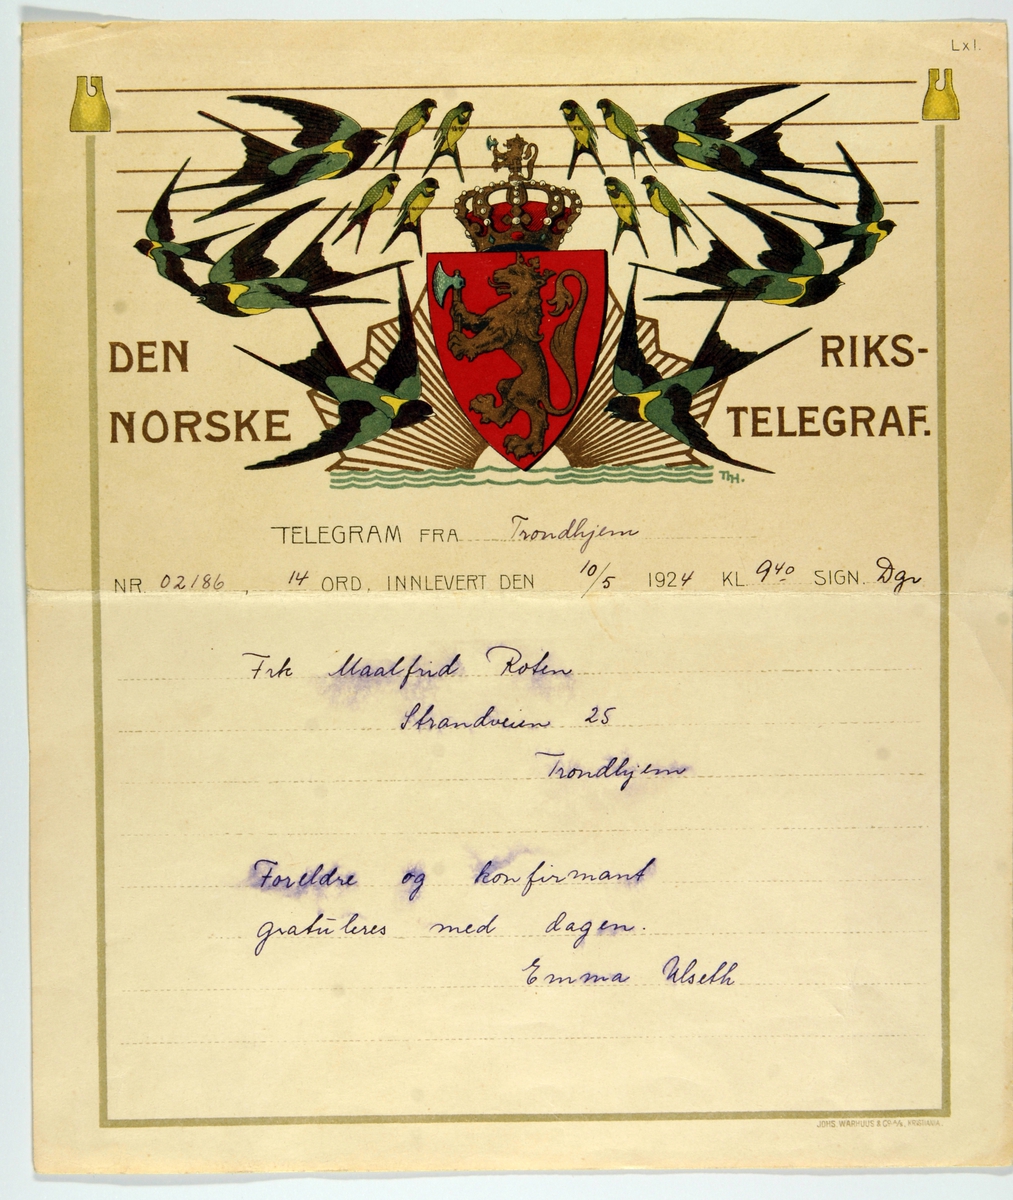 Lx1.
DEN NORSKE
RIKS-
TELEGRAF.
TH.
TELEGRAM FRA Trondhjem
NR. 02186, 14 ORD, INNLEVERT DEN 10/5 1924 KL 9⁴⁰ SIGN. Dgr
Frk Maalfrid Roten
Strandveien 25
Trondhjem
Foreldre og konfirmant
gratuleres med dagen.
Emma Ulseth
JOHS. WARHUUS & CO. A/S, KRISTIANIA.